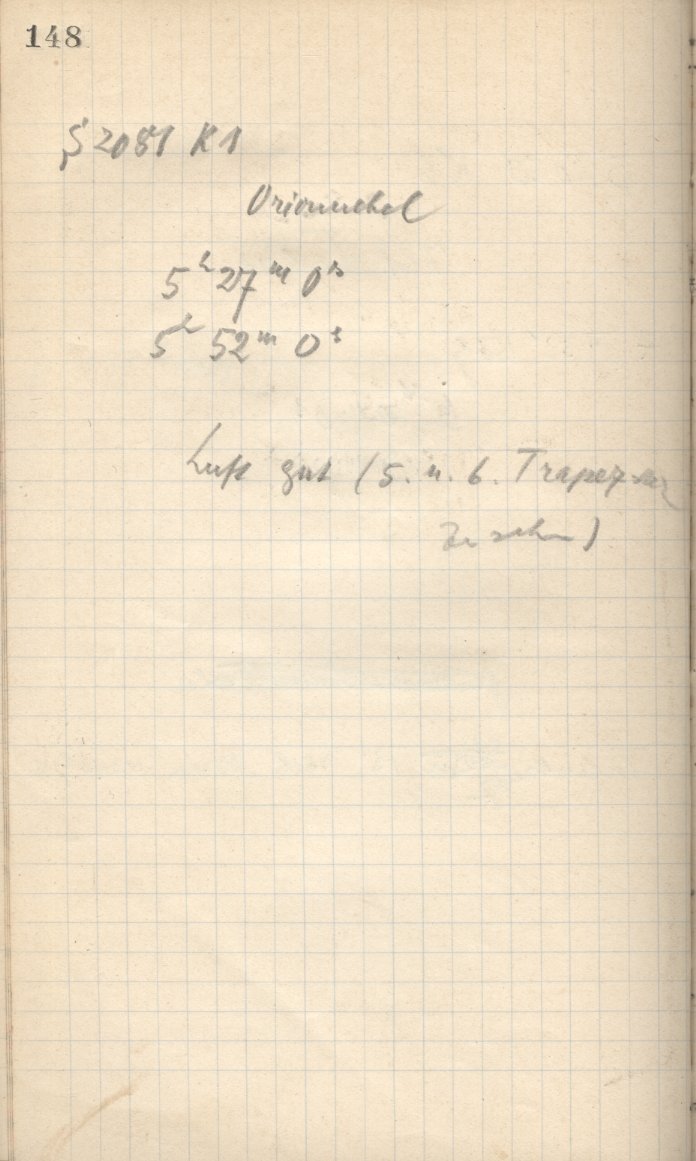 148
S 2081 K1
Orionnebel
5h 27m 0s
5h 52m 0s
Luft gut (5. u. 6. Trapez
zu sehen)